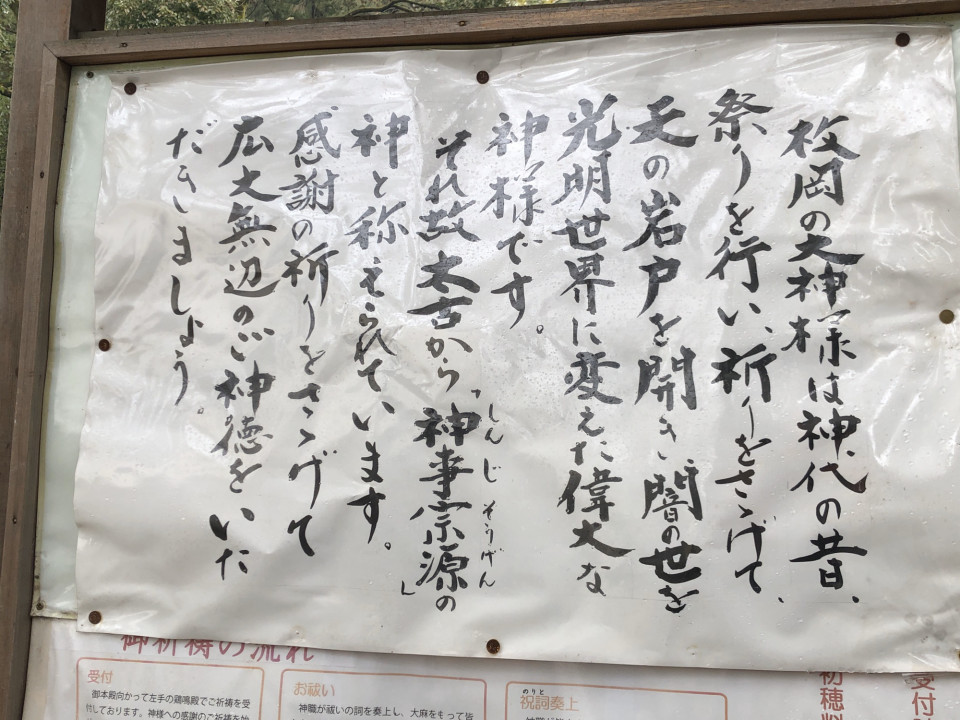 枚岡の大神様は神代の昔、
祭りを行い、祈りをさゝげて、
天の岩戸を開き、闇の世を
光明世界に変えた偉大な
神様です。
それ故太古から「神事宗源の
しんじそうげん
神と称えられています。」
感謝の祈りをさゝげて
広大無辺のご神徳をいた
だきましょう。
御祈祷の流れ
受付
御本殿向かって左手の鶏鳴殿でご祈祷を受
付しております。神様への感謝のご祈祷を始
お祓い
神職が祓いの詞を奏上し、大麻をもって皆
のりと
祝詞奏上
初穂料
受付